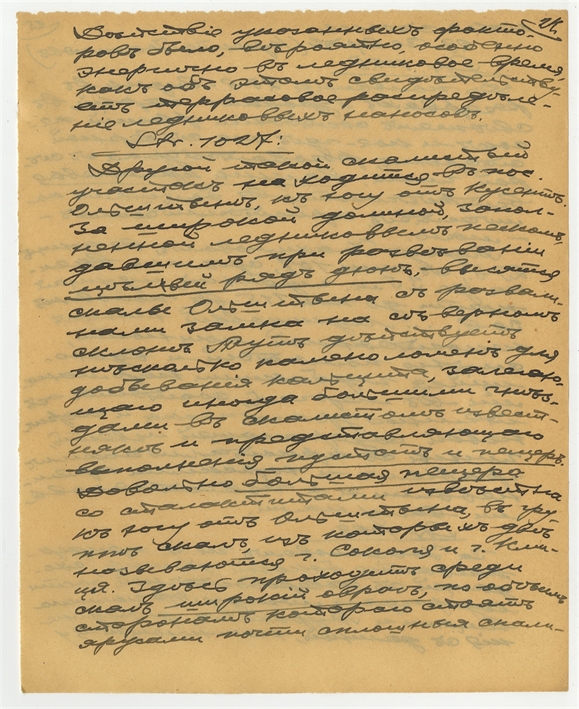 Дѣйствіе указанныхъ факто-
ровъ было, вѣроятно, особенно
энергично въ ледниковое время,
какъ объ этомъ свидѣтельству-
етъ террасовое распредѣле-
ніе ледниковыхъ наносовъ.
Str. 102
Другой такой скалистый
участокъ находится въ пос.
Ольштынъ, къ югу отъ Кусентъ.
За широкой долиной, запол-
ненной ледниковымъ пескомъ,
давшимъ при развѣваніи
цѣлый рядъ дюнъ, высятся
скалы Ольштына съ развали-
нами замка на сѣверномъ
склонѣ. Тутъ дѣйствуетъ
нѣсколько каменоломенъ для
добыванія кальцита, залегаю-
щаго иногда большими гнѣз-
дами въ скалистомъ извест-
някѣ и представляющаго
выполненія пустотъ и пещеръ.
Довольно большая пещера
со сталактитами извѣстна
къ югу отъ Ольштына, въ гру
ппѣ скалъ, изъ которыхъ двѣ
называются г. Соколя и г.
Здѣсь проходитъ среди
скалъ широкій оврагъ, по обѣимъ
сторонамъ котораго стоятъ
ярусами почти сплошныя скали-